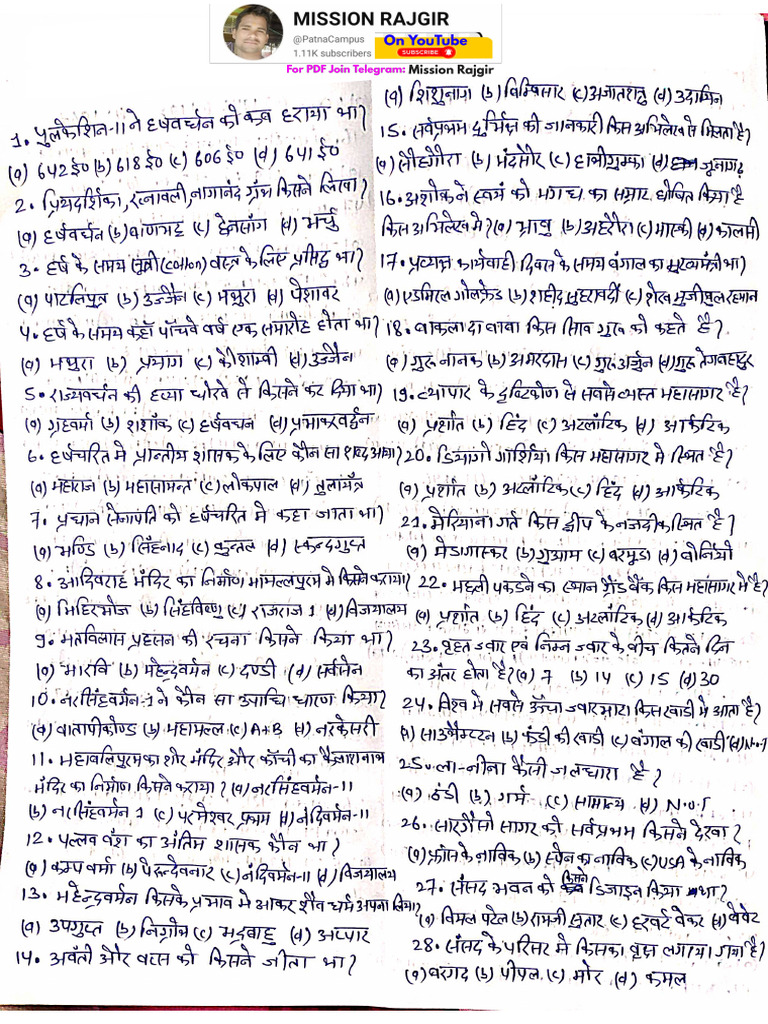 MISSION RAJGIR
@PatnaCampus
On YouTube
1.11K subscribers
SUBSCRIBE
For PDF Join Telegram: Mission Rajgir
1. पुलकेशिन-II ने हर्षवर्धन को कब हराया था?
(a) 642 ई० (b) 618 ई० (c) 606 ई० (d) 641 ई०
2. प्रियदर्शिका, रत्नावली, नागानंद ग्रंथ किसने लिखा?
(a) हर्षवर्धन (b) बाणभट्ट (c) ह्वेनसांग (d) भर्चु
3. हर्ष के समय सूती (cotton) वस्त्र के लिए प्रसिद्ध था?
(a) पाटलिपुत्र (b) उज्जैन (c) मथुरा (d) पेशावर
4. हर्ष के समय कहाँ पाँचवे वर्ष एक समारोह होता था?
(a) मथुरा (b) प्रयाग (c) कौशाम्बी (d) उज्जैन
5. राज्यवर्धन की हत्या धोखे से किसने कर दिया था?
(a) ग्रहवर्मा (b) शशांक (c) हर्षवर्धन (d) प्रभाकरवर्द्धन
6. हर्षचरित मे प्रान्तीय शासक के लिए कौन सा शब्द आया?
(a) महाराज (b) महासामन्त (c) लोकपाल (d)
7. प्रधान सेनापति को हर्षचरित मे कहा जाता था?
(a) भण्डि (b) सिंहनाद (c) कुन्तल (d) स्कन्दगुप्त
8. आदिवराह मंदिर का निर्माण मामल्लपुरम मे किसने कराया?
(a) मिहिरभोज (b) सिंहविष्णु (c) राजराज 1 (d) विजयालय
9. मतविलास प्रहसन की रचना किसने किया था?
(a) भारवि (b) महेन्द्रवर्मन (c) दण्डी (d) सर्वसेन
10. नरसिंहवर्मन-1 ने कौन सा उपाधि धारण किया?
(a) वातापीकोण्ड (b) महामल्ल (c) A+B (d) नरकेसरी
11. महाबलिपुरम का शोर मंदिर और काँची का कैलाशनाथ
मंदिर का निर्माण किसने कराया? (a) नरसिंहवर्मन-11
(b) नरसिंहवर्मन 1 (c) परमेश्वर प्रथम (d) नंदिवर्मन-11
12. पल्लव वंश का अंतिम शासक कौन था?
(a) कम्प वर्मा (b) पेरुन्देवनार (c) नंदिवर्मन-11 (d) विजयालय
13. महेन्द्रवर्मन किसके प्रभाव मे आकर शैव धर्म अपना लिया?
(a) उपगुप्त (b) निग्रोध (c) भद्रबाहु (d) अप्पार
14. अवंती और वत्स को किसने जीता था?
(a) शिशुनाग (b) विम्बिसार (c) अजातशत्रु (d) उदायिन
15. सर्वप्रथम दुर्भिक्ष की जानकारी किस अभिलेख से मिलता है?
(a) सौहगौरा (b) मंदसौर (c) हाथीगुम्फा (d) जूनागढ़
16. अशोक ने स्वयं को मगध का सम्राट घोषित किया है
किस अभिलेख मे? (a) भाब्रु (b) अहरौरा (c) मास्की (d) कालसी
17. प्रत्यक्ष कार्यवाही दिवस के समय बंगाल का मुख्यमंत्री था?
(a) एडमिरल गोलफ्रेड (b) शहीद सुहरावर्दी (c) शेख मुजीबुल रहमान
18. वाकला दा बाबा किस सिख गुरु को कहते है?
(a) गुरु नानक (b) अमरदास (c) गुरु अर्जुन (d) गुरु तेगबहादुर
19. व्यापार के दृष्टिकोण से सबसे व्यस्त महासागर है?
(a) प्रशांत (b) हिंद (c) अटलांटिक (d) आर्कटिक
20. डियागो गार्शिया किस महासागर मे स्थित है?
(a) प्रशांत (b) अटलांटिक (c) हिंद (d) आर्कटिक
21. मेरियाना गर्त किस द्वीप के नजदीक स्थित है?
(a) मेडागास्कर (b) गुआम (c) बरमूडा (d) बोर्नियो
22. मछली पकडने का स्थान ग्रैंड बैंक किस महासागर मे है?
(a) प्रशांत (b) हिंद (c) अटलांटिक (d) आर्कटिक
23. वृहत ज्वार एवं निम्न ज्वार के बीच कितने दिन
का अंतर होता है? (a) 7 (b) 14 (c) 15 (d) 30
24. विश्व मे सबसे ऊँचा ज्वारभाटा किस खाडी मे आता है?
(a) साउथैम्पटन (b) फंडी की खाडी (c) बंगाल की खाडी (d) N.O.T
25. ला-नीना कैसी जलधारा है?
(a) ठंडी (b) गर्म (c) सामान्य (d) N.O.T
26. सारगैसो सागर को सर्वप्रथम किसने देखा?
(a) फ्रांस के नाविक (b) स्पेन का नाविक (c) USA के नाविक
27. संसद भवन को किसने डिजाइन किया था?
(a) विमल पटेल (b) रामजी सुतार (c) हरबर्ट बेकर (d) वेवेट
28. संसद के परिसर मे किसका वृक्ष लगाया गया है?
(a) बरगद (b) पीपल (c) मोर (d) कमल